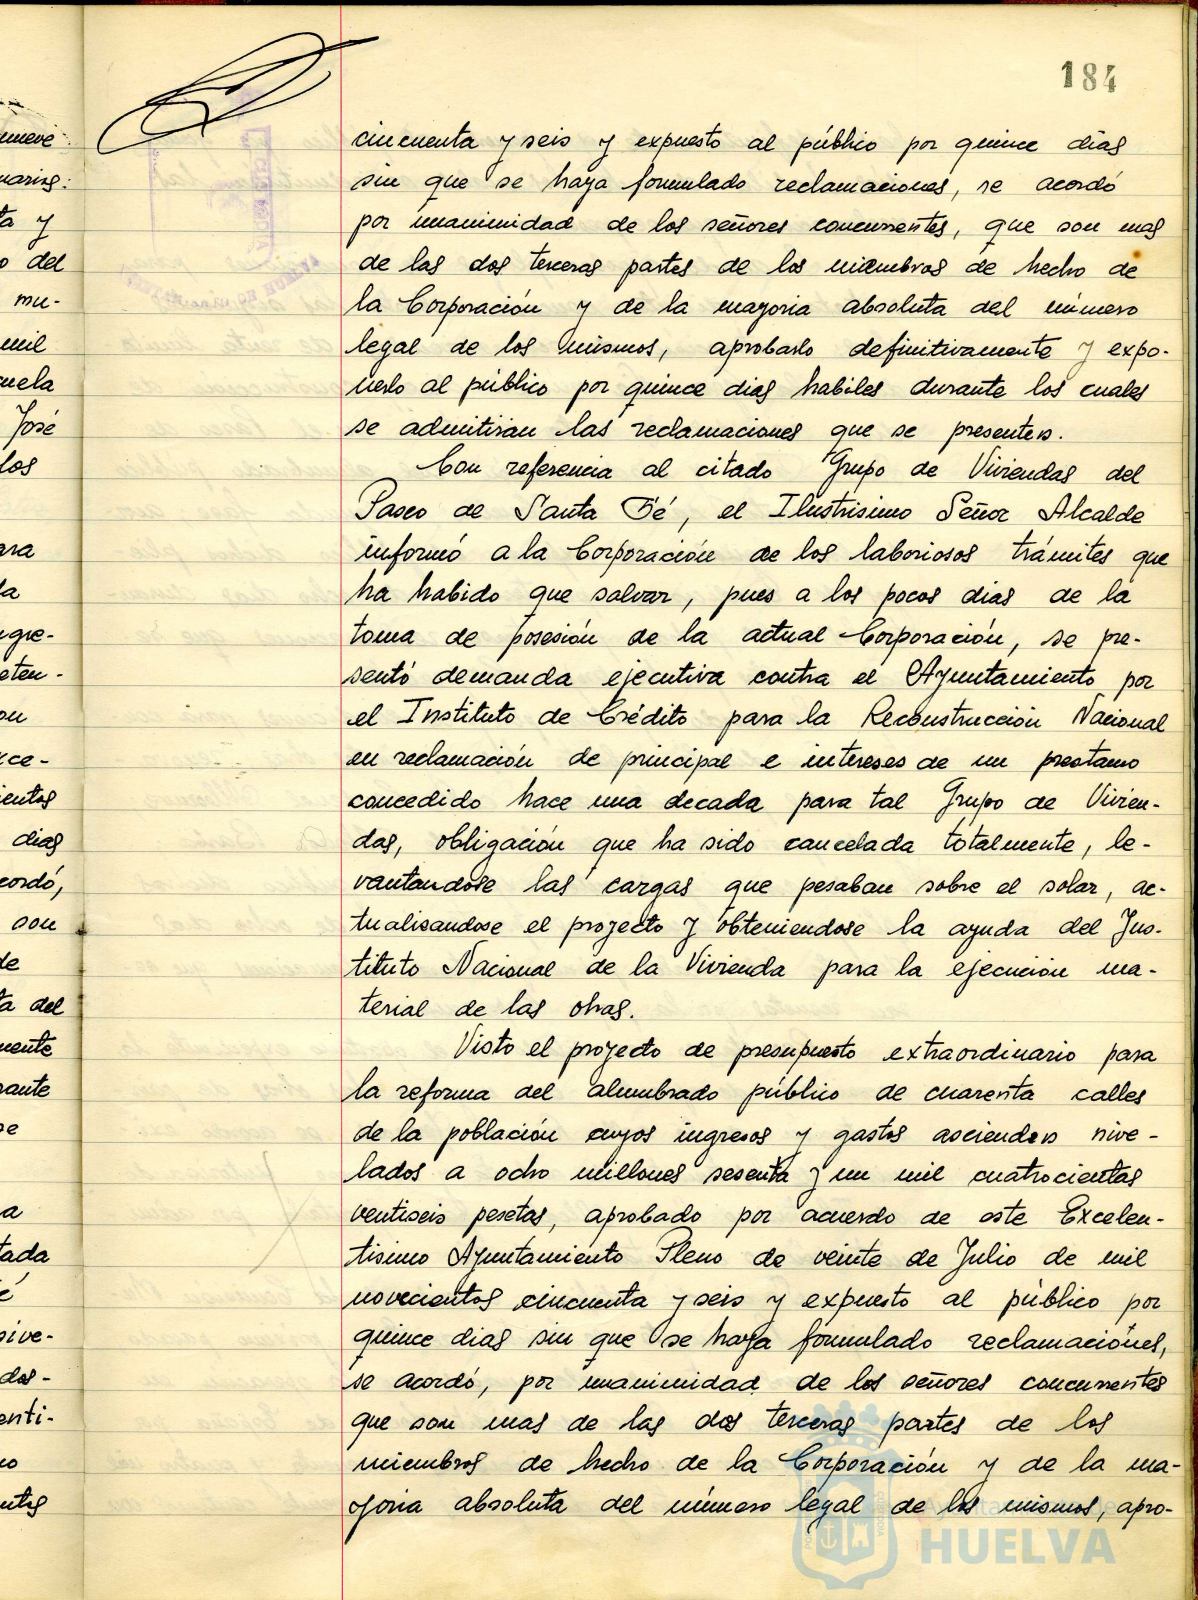 184
cincuenta y seis y expuesto al público por quince dias
sin que se haya formulado reclamaciones, se acordó
por unanimidad de los señores concurrentes, que son mas
de las dos terceras partes de los miembros de hecho de
la Corporación y de la mayoria absoluta del número
legal de los mismos, aprobarlo definitivamente y expo-
nerlo al público por quince dias habiles durante los cuales
se admitiran las reclamaciones que se presenten.
Con referencia al citado Grupo de Viviendas del
Paseo de Santa Fé, el Ilustrisimo Señor Alcalde
informó a la Corporación de los laboriosos trámites que
ha habido que salvar, pues a los pocos dias de la
toma de posesión de la actual Corporación, se pre-
sentó demanda ejecutiva contra el Ayuntamiento por
el Instituto de Crédito para la Reconstrucción Nacional
en reclamación de principal e intereses de un prestamo
concedido hace una decada para tal Grupo de Vivien-
das, obligación que ha sido cancelada totalmente, le-
vantandose las cargas que pesaban sobre el solar, ac-
tualisandose el proyecto y obteniendose la ayuda del Ins-
tituto Nacional de la Vivienda para la ejecución ma-
terial de las obras.
Visto el proyecto de presupuesto extraordinario para
la reforma del alumbrado público de cuarenta calles
de la población cuyos ingresos y gastos ascienden nive-
lados a ocho millones sesenta y un mil cuatrocientas
ventiseis pesetas, aprobado por acuerdo de este Excelen-
tisimo Ayuntamiento Pleno de veinte de Julio de mil
novecientos cincuenta y seis y expuesto al público por
quince dias sin que se haya formulado reclamaciones,
se acordó, por unanimidad de los señores concurrentes
que son mas de las dos terceras partes de los
miembros de hecho de la Corporación y de la ma-
yoria absoluta del número legal de los mismos, apro-
HUELVA